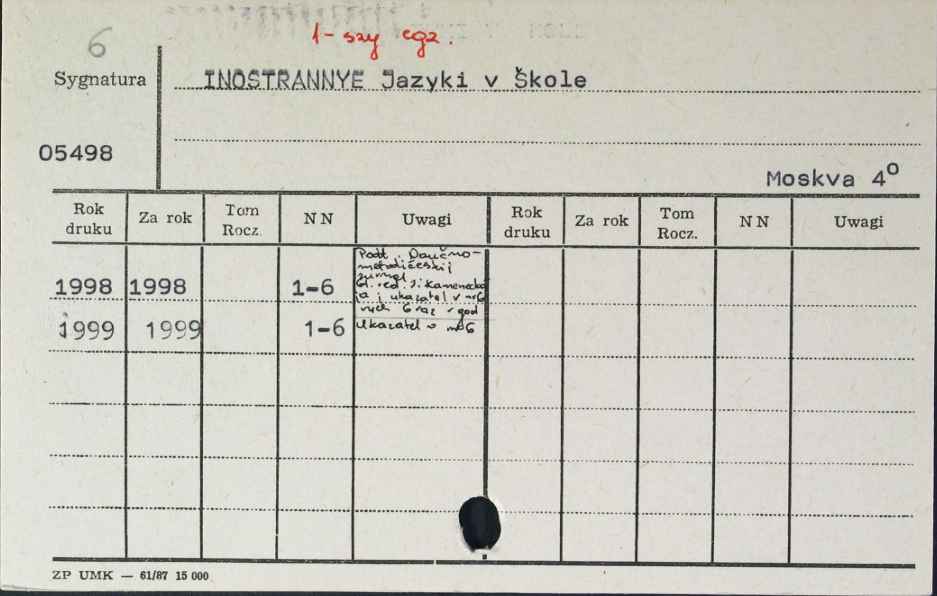 6
1-szy egz.
Sygnatura INOSTRANNYE Jazyki v Škole
05498
Moskva 4°
Rok druku Za rok Tom Rocz. N N Uwagi Rok druku Za rok Tom Rocz. N N Uwagi
Podt. Naučno-
metodičeskij
žurnal
1998 1998 1-6 Gl. red. I. Kamenecka
ja i ukazatel v nr 6
vych 6 raz v god
1999 1999 1-6 Ukazatel v nr 6
ZP UMK — 61/87 15 000